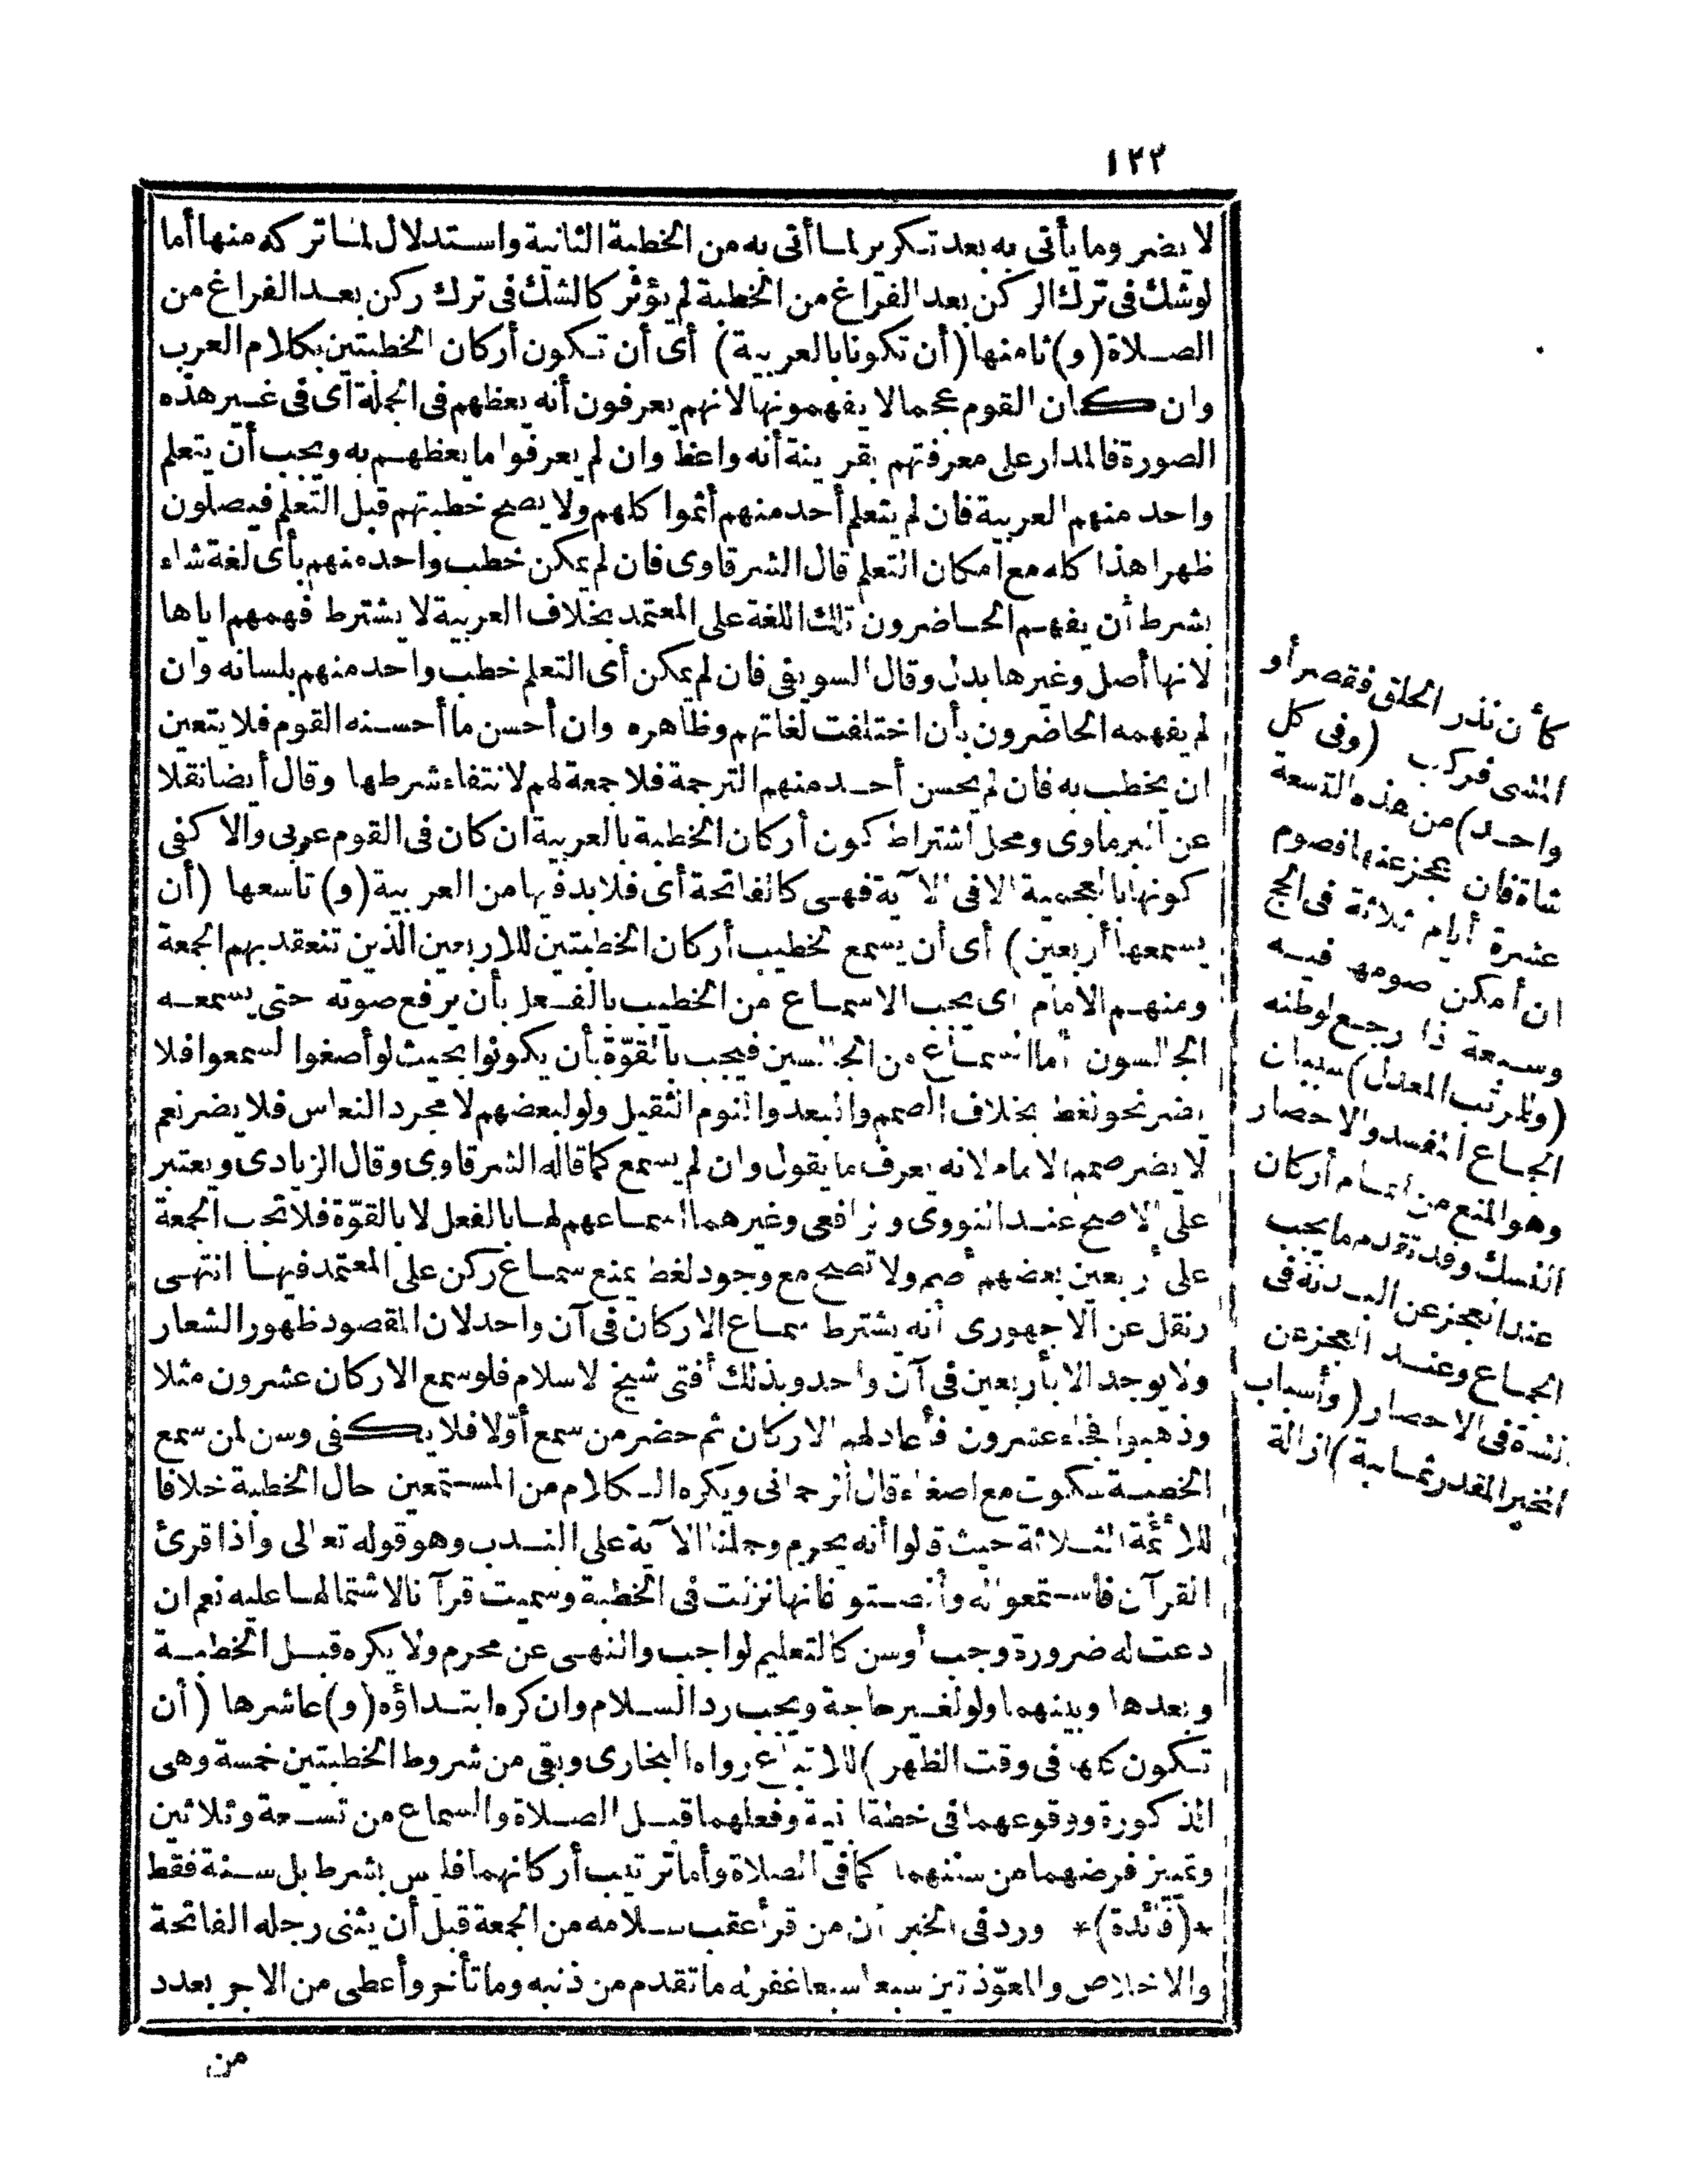 ١٢٢
لا يضر وما يأتى به بعد تكرير لما أتى به من الخطبة الثانية واستدلال لما تركه منها أما
لو شك فى ترك الركن بعد الفراغ من الخطبة لم يؤثر كالشك فى ترك ركن بعد الفراغ من
الصلاة (و) ثامنها (أن تكونا بالعربية) أى أن تكون أركان الخطبتين بكلام العرب
وان كان القوم عجما لا يفهمونها لانهم يعرفون أنه يعظهم فى الجملة أى فى غير هذه
الصورة فالمدار على معرفتهم بقرينة أنه واعظ وان لم يعرفوا ما يعظهم به ويجب أن يتعلم
واحد منهم العربية فان لم يتعلم أحد منهم أثموا كلهم ولا يصح خطبتهم قبل التعلم فيصلون
ظهرا هذا كله مع امكان التعلم قال الشرقاوى فان لم يمكن خطب واحد منهم بأى لغة شاء
بشرط أن يفهم الحاضرون تلك اللغة على المعتمد بخلاف العربية لا يشترط فهمهم اياها
لانها أصل وغيرها بدل وقال السويفى فان لم يمكن أى التعلم خطب واحد منهم بلسانه وان
لم يفهمه الحاضرون بأن اختلفت لغاتهم وظاهره وان أحسن ما أحسنه القوم فلا يتعين
ان يخطب به فان لم يحسن أحد منهم الترجمة فلا جمعة لهم لانتفاء شرطها وقال أيضا نقلا
عن البرماوى ومحل اشتراط كون أركان الخطبة بالعربية ان كان فى القوم عربى والا كفى
كونها بالعجمية الا فى الآية فهى كالفاتحة أى فلا بد فيها من العربية (و) تاسعها (أن
يسمعها أربعين) أى أن يسمع الخطيب أركان الخطبتين للاربعين الذين تنعقد بهم الجمعة
ومنهم الامام أى يجب الاسماع من الخطيب بالفعل بأن يرفع صوته حتى يسمعه
الجالسون أما السماع من الجالسين فيجب بالقوّة بأن يكونوا بحيث لو أصغوا لسمعوا فلا
يضر نحو لغط بخلاف الصمم والبعد والنوم الثقيل ولو لبعضهم لا مجرد النعاس فلا يضر نعم
لا يضر صمم الامام لانه يعرف ما يقول وان لم يسمع كما قاله الشرقاوى وقال الزيادى ويعتبر
على الاصح عند النووى والرافعى وغيرهما سماعهم لها بالفعل لا بالقوّة فلا تجب الجمعة
على أربعين بعضهم أصم ولا تصح مع وجود لغط يمنع سماع ركن على المعتمد فيها انتهى
ونقل عن الاجهورى أنه يشترط سماع الاركان فى آن واحد لان المقصود ظهور الشعار
ولا يوجد الا بأربعين فى آن واحد وبذلك أفتى شيخ الاسلام فلو سمع الاركان عشرون مثلا
وذهبوا فجاء عشرون فأعاد لهم الاركان ثم حضر من سمع أوّلا فلا يكفى وسن لمن سمع
الخطبة سكوت مع اصغاء قال الرحمانى ويكره الكلام من المستمعين حال الخطبة خلافا
للأئمة الثلاثة حيث قالوا أنه يحرم وحملنا الآية على الندب وهو قوله تعالى واذا قرئ
القرآن فاستمعوا له وأنصتوا فانها نزلت فى الخطبة وسميت قرآنا لاشتمالها عليه نعم ان
دعت له ضرورة وجب أو سن كالتعليم لواجب والنهى عن محرم ولا يكره قبل الخطبة
وبعدها وبينهما ولو لغير حاجة ويجب رد السلام وان كره ابتداؤه (و) عاشرها (أن
تكون كلها فى وقت الظهر) للاتباع رواه البخارى وبقى من شروط الخطبتين خمسة وهى
الذكورة ووقوعهما فى خطة أبنية وفعلهما قبل الصلاة والسماع من تسعة وثلاثين
وتمييز فرضهما من سننهما كما فى الصلاة وأما ترتيب أركانهما فليس بشرط بل سنة فقط
*(فائدة)* ورد فى الخبر أن من قرأ عقب سلامه من الجمعة قبل أن يثنى رجله الفاتحة
والاخلاص والمعوّذتين سبعا سبعا غفر له ما تقدم من ذنبه وما تأخر وأعطى من الاجر بعدد
من
كأن نذر الحلق فقصر أو
المشى فركب (وفى كل
واحد) من هذه التسعة
شاة فان عجز عنها فصوم
عشرة أيام ثلاثة فى الحج
ان أمكن صومها فيه
وسبعة اذا رجع لوطنه
(والمرتب المعدل) سببان
الجماع المفسد والاحصار
وهو المنع من اتمام أركان
النسك وقد تقدم ما يجب
عند العجز عن البدنة فى
الجماع وعند العجز عن
الشاة فى الاحصار (وأسباب
المخير المقدر ثمانية) ازالة